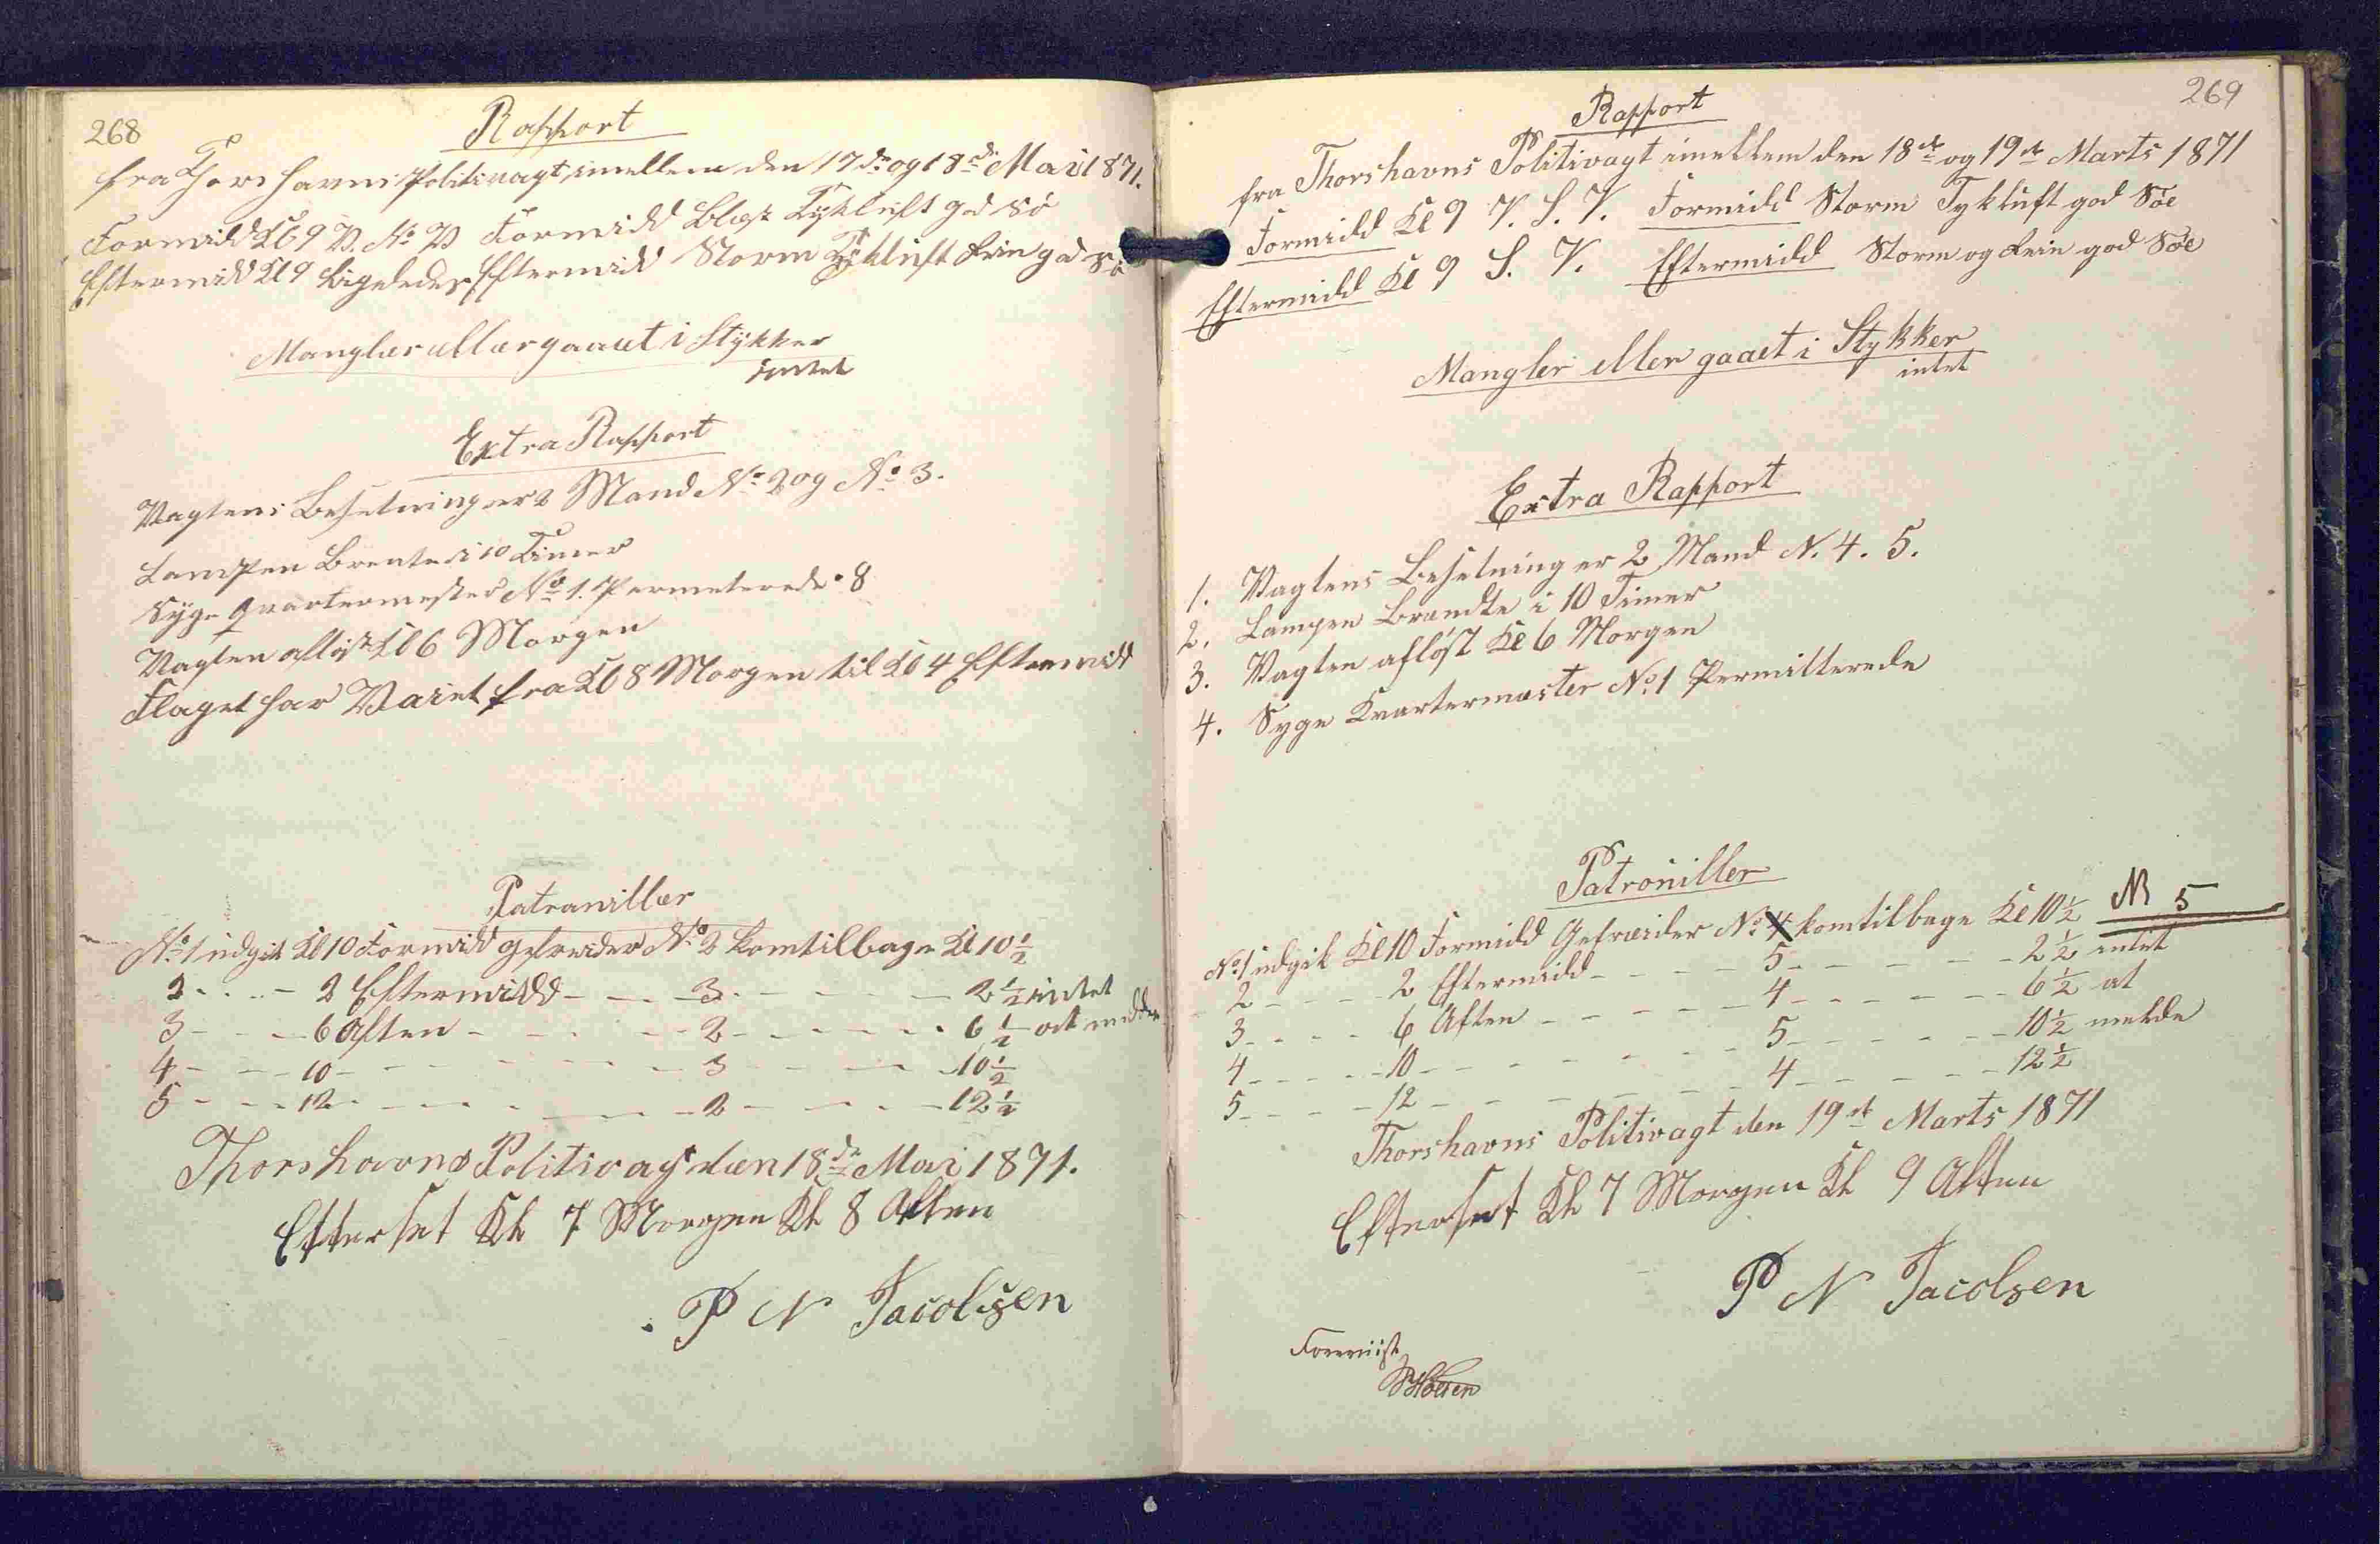 268
Rapport
fra Thorshavns Politivagt imellem den 17de og 18de Mai 1871.
Formidd Kl 9 V. N. V Formidd Blæst Tykluft god Sö
Eftermidd Kl 9 Ligeledes Eftermidd Storm Tykluft Rein god Sö
Mangler eller gaaet i Stykker
intet
Extra Rapport
Vagtens Besetning er 2 Mand No 2 og No 3.
Lampen Brente i 10 Timer
Syge Qvartermester No 1. Permeterede 8
Vagten afløst Kl 6 Morgen
Flaget har Vaiet fra Kl 8 Morgen til Kl 4 Eftermidd
Patraniller
No 1 udgik Kl 10 Formidd gefreider No 2 komtilbage Kl 10 1/2
2 - - - 2 Eftermidd - - - 3 - - - 2 1/2 intet
3 - - - 6 Aften - - - 2 - - - 6 1/2 at melde
4 - - - 10 - - - 3 - - - 10 1/2
5 - - - 12 - - - 2 - - - 12 1/2
Thorshavns Politivagt den 18de Mai 1871.
Efterset Kl 7 Morgen Kl 8 Aften
P N Jacobsen
269
Rapport
fra Thorshavns Politivagt imellem den 18de og 19de Marts 1871
Formidd Kl 9 V. S. V. Formidd Storm Tykluft god Söe
Eftermidd Kl 9 S. V. Eftermidd Storm og Rein god Söe
Mangler eller gaaet i Stykker
intet
Extra Rapport
1. Vagtens Besetning er 2 Mand N. 4. 5.
2. Lampen Brandte i 10 Timer
3. Vagten afløst Kl 6 Morgen
4. Syge Kvartermæster No 1 Permitterede
Patrouiller
No 1 udgik Kl 10 Formidd Gefreider No 4 komtilbage Kl 10 1/2 N 5
2 - - - 2 Eftermidd - - - 5 - - - 2 1/2 intet
3 - - - 6 Aften - - - 4 - - - 6 1/2 at
4 - - - 10 - - - 5 - - - 10 1/2 melde
5 - - - 12 - - - 4 - - - 12 1/2
Thorshavns Politivagt den 19de Marts 1871
Efterset Kl 7 Morgen Kl 9 Aften
P N Jacobsen
Foreviist